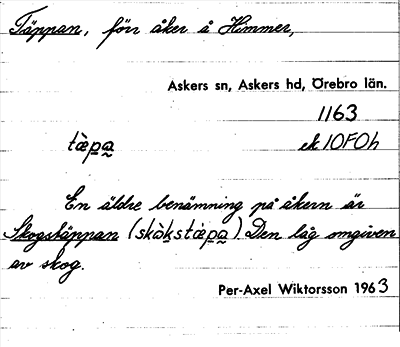 Täppan, förr åker å Himmer,
Askers sn, Askers hd, Örebro län.
1163
tæ̀pa̰ ek 10F0h
En äldre benämning på åkern är
Skogstäppan (skòkstæpa̰). Den låg omgiven
av skog.
Per-Axel Wiktorsson 1963